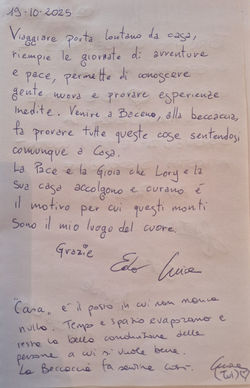 19-10-2025
Viaggiare porta lontano da casa,
riempie le giornate di avventure
e pace, permette di conoscere
gente nuova e provare esperienze
inedite. Venire a Baceno, alla beccaccia,
fa provare tutte queste cose sentendosi
comunque a Casa.
La Pace e la Gioia che Lory e la
sua casa accolgono e curano è
il motivo per cui questi monti
sono il mio luogo del cuore.
Grazie
Edo Luisa
"Casa, è il posto in cui non manca
nulla. Tempo e spazio evaporano e
resta la bella condizione delle
persone a cui si vuole bene.
La Beccaccia fa sentire così.